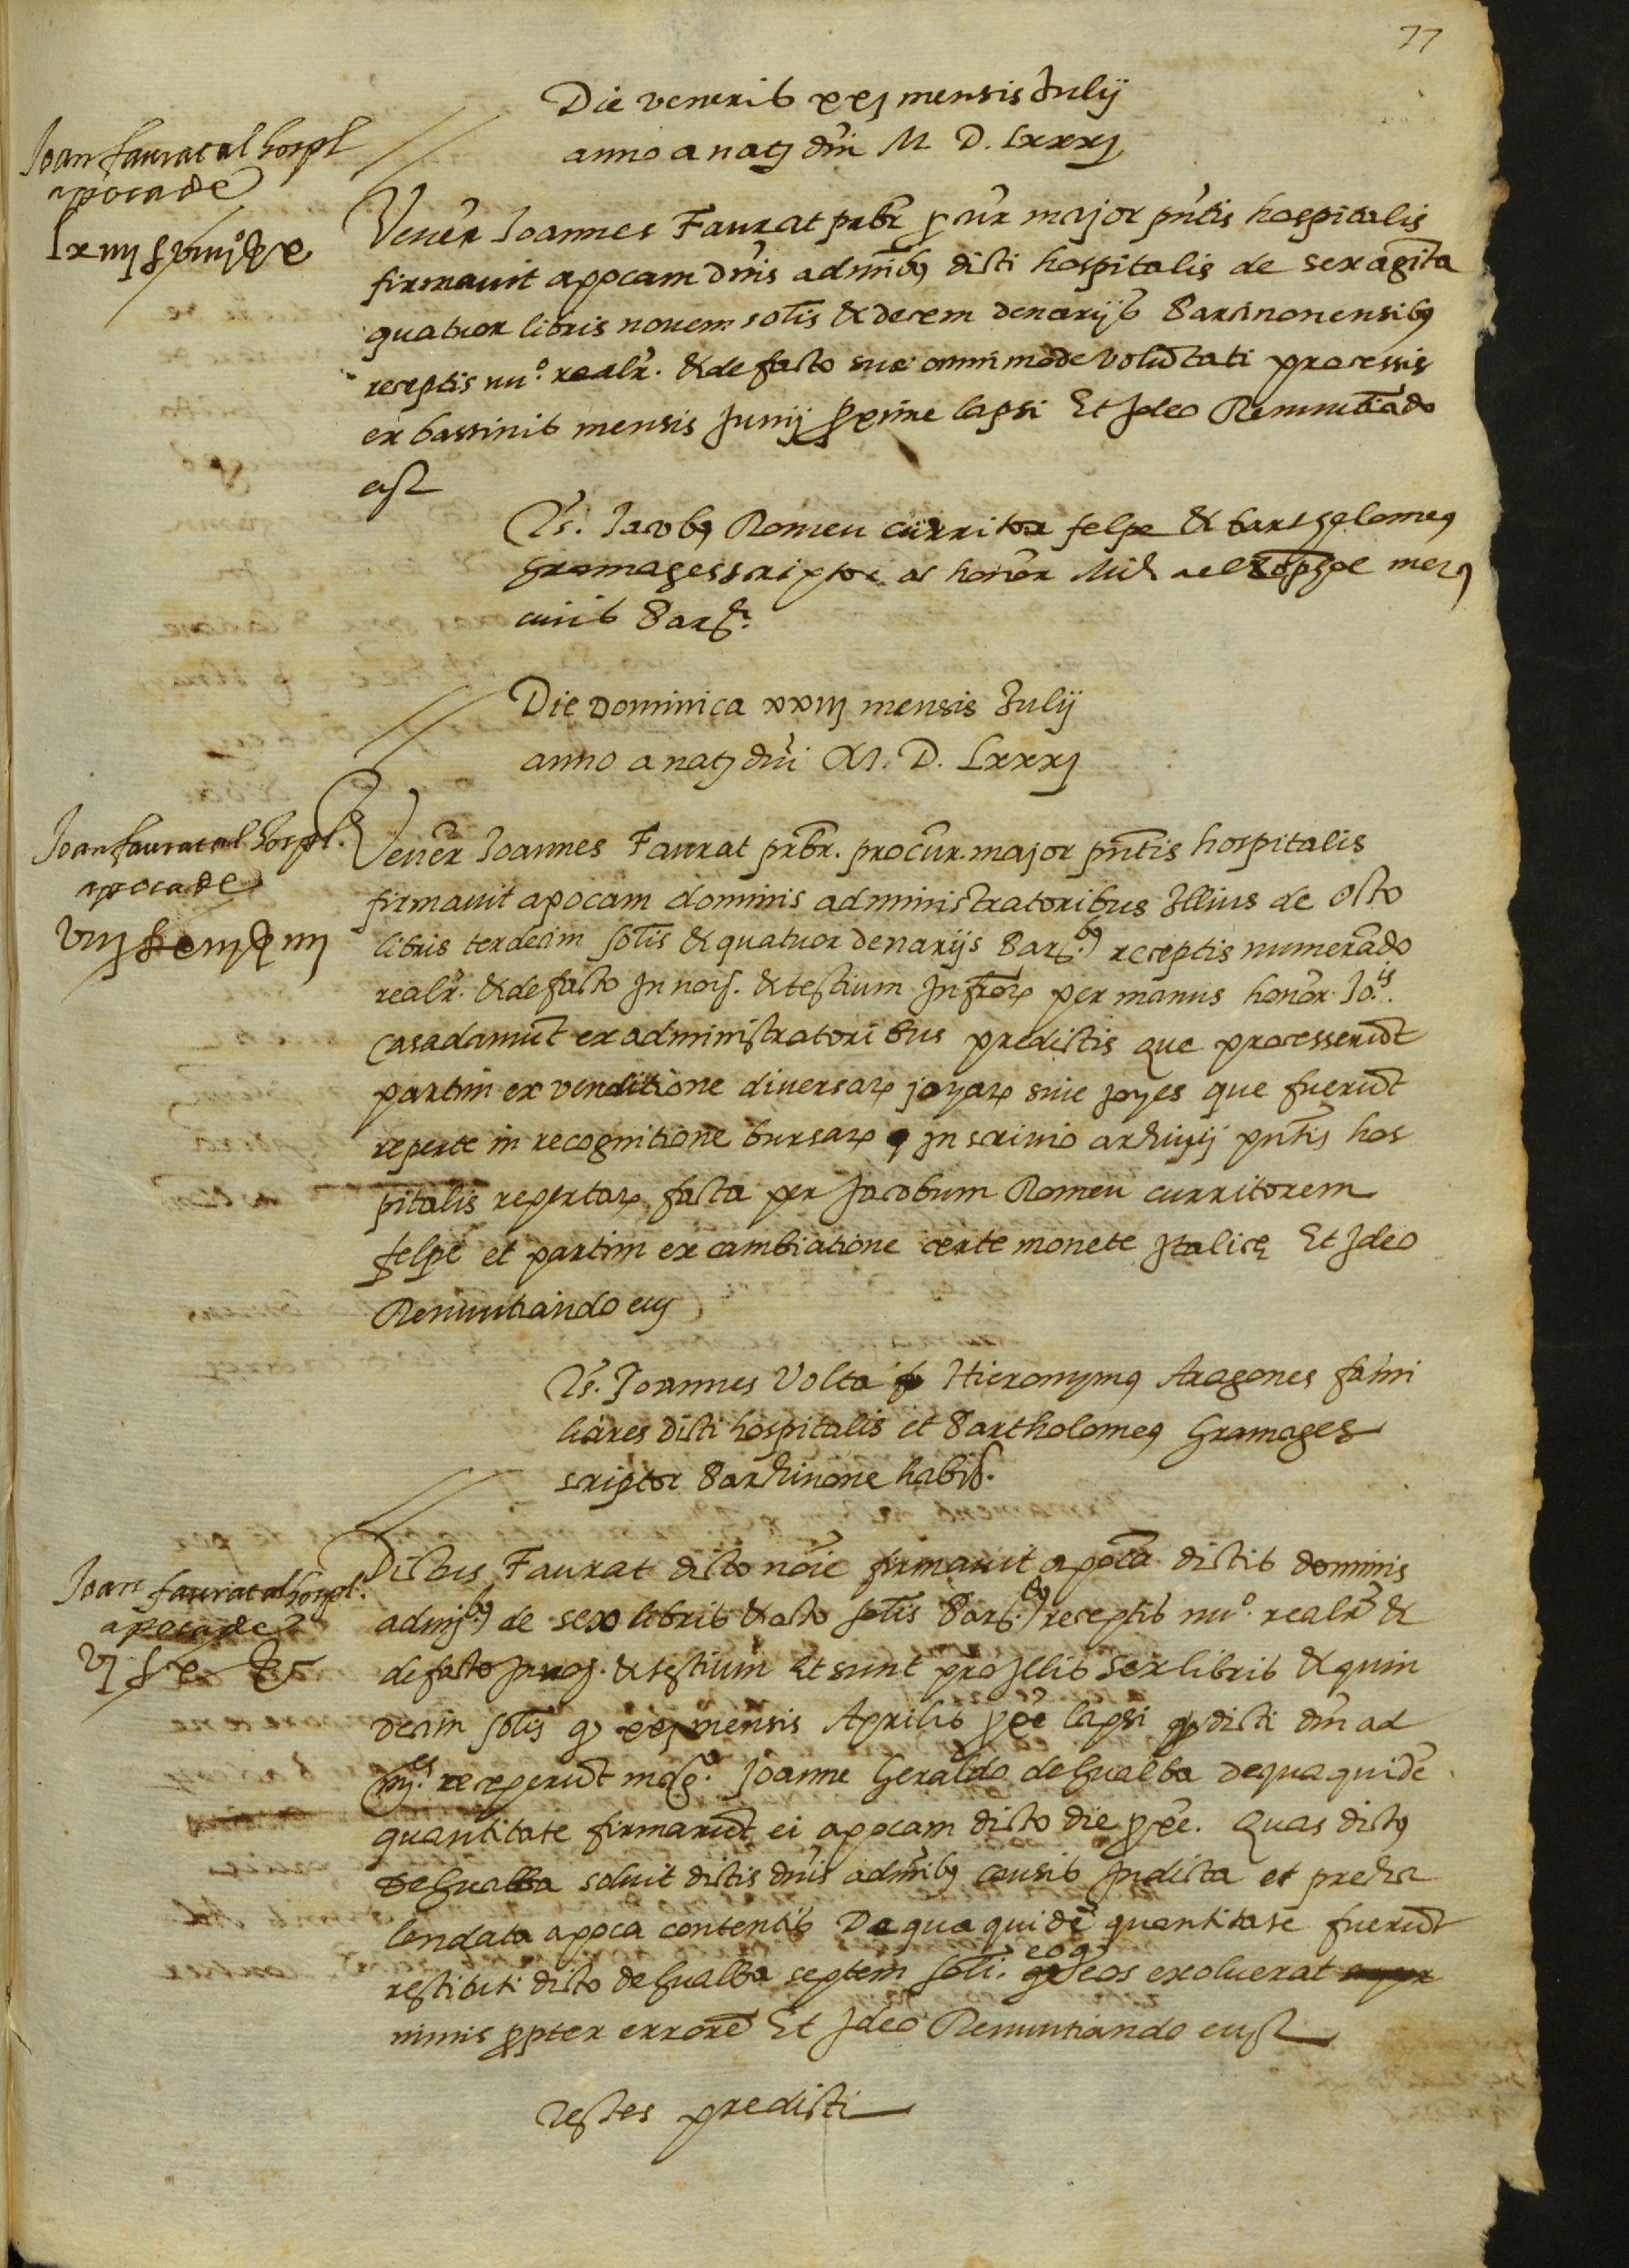 77
Die veneris xxj mensis Julij
anno a natj dni M D. Lxxxj
Joan faurat al hospl
apoca de
Lxiiij ƚ viiij ẟ x
Vener Joannes Faurat prbr pcur major pntis hospitalis
firmavit apocam dnis admibꝯ dicti hospitalis de sexaginta
quatuor libris novem solis & decem denarijs Barcinonensibꝯ
receptis nuº. realr. & de facto sue omnimode voluntati processis
ex bassinis mensis Junij pxime lapsi Et Ideo Renuntiado
Ts. Jacobꝯ Romeu curritor felpe & bartholomeꝯ
Gramages scriptor ac honor Michael merꝯ
civis Barch
Die Dominica xxiij mensis Julij
anno a natj dni M. D. Lxxxj
Joan faurat al hospl.
apoca de
viij ƚ xiij ẟ iiij
Vener Joannes Faurat prbr. procur. major pntis hospitalis
firmavit apocam dominis administratoribus Illius de octo
libris terdecim solis & quatuor denarijs Barchbꝯ receptis numerado
realr. & de facto In noij. & testium Infrorꝝ per manus honor Jois.
Casadamunt ex administratoribus predictis que processerunt
partim ex venditione diversarꝝ joyarꝝ sive joyes que fuerunt
reperte in recognitione bursarꝝ in scrinio archivij pntis hos
pitalis repertarꝝ facta per Jacobum Romeu curritorem
felpe et partim ex cambiatione certe monete Italice Et Ideo
Renuntiando eꝯ
Ts. Joannes Volta Hieronymꝯ Aragones fami
liares dicti hospitalis et Bartholomeꝯ Gramages
scriptor Barchinone habis.
Joan faurat al hospl.
apoca de
vj ƚ
Dictus Faurat dicto noie firmavit apoca dictis dominis
admjbꝯ de sex libris & octo solis Barchbꝯ receptis nuº. realr &
de facto In noj. & testium Et sunt pro Illis sex libris & quin
decim solis qꝫ xxj mensis Aprilis pxe lapsi dicti dni ad
mjes receperunt mag.co Joanne Geraldo de Gualba de qua quide
quantitate firmarunt ei apocam dicto die pxe. Quas dictꝯ
de Gualba solvit dictis dnis admibꝯ causis In dicta et preca
lendata apoca contentis De qua quide quantitate fuerunt
restituti dicto de Gualba septem soli. eo qꝫ eos exoluerat
nimis ppter errore Et Ideo Renuntiando
Testes predicti